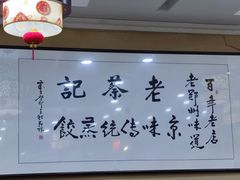 百年老店
老鄭州味道
老蔡記
京味傳統蒸餃